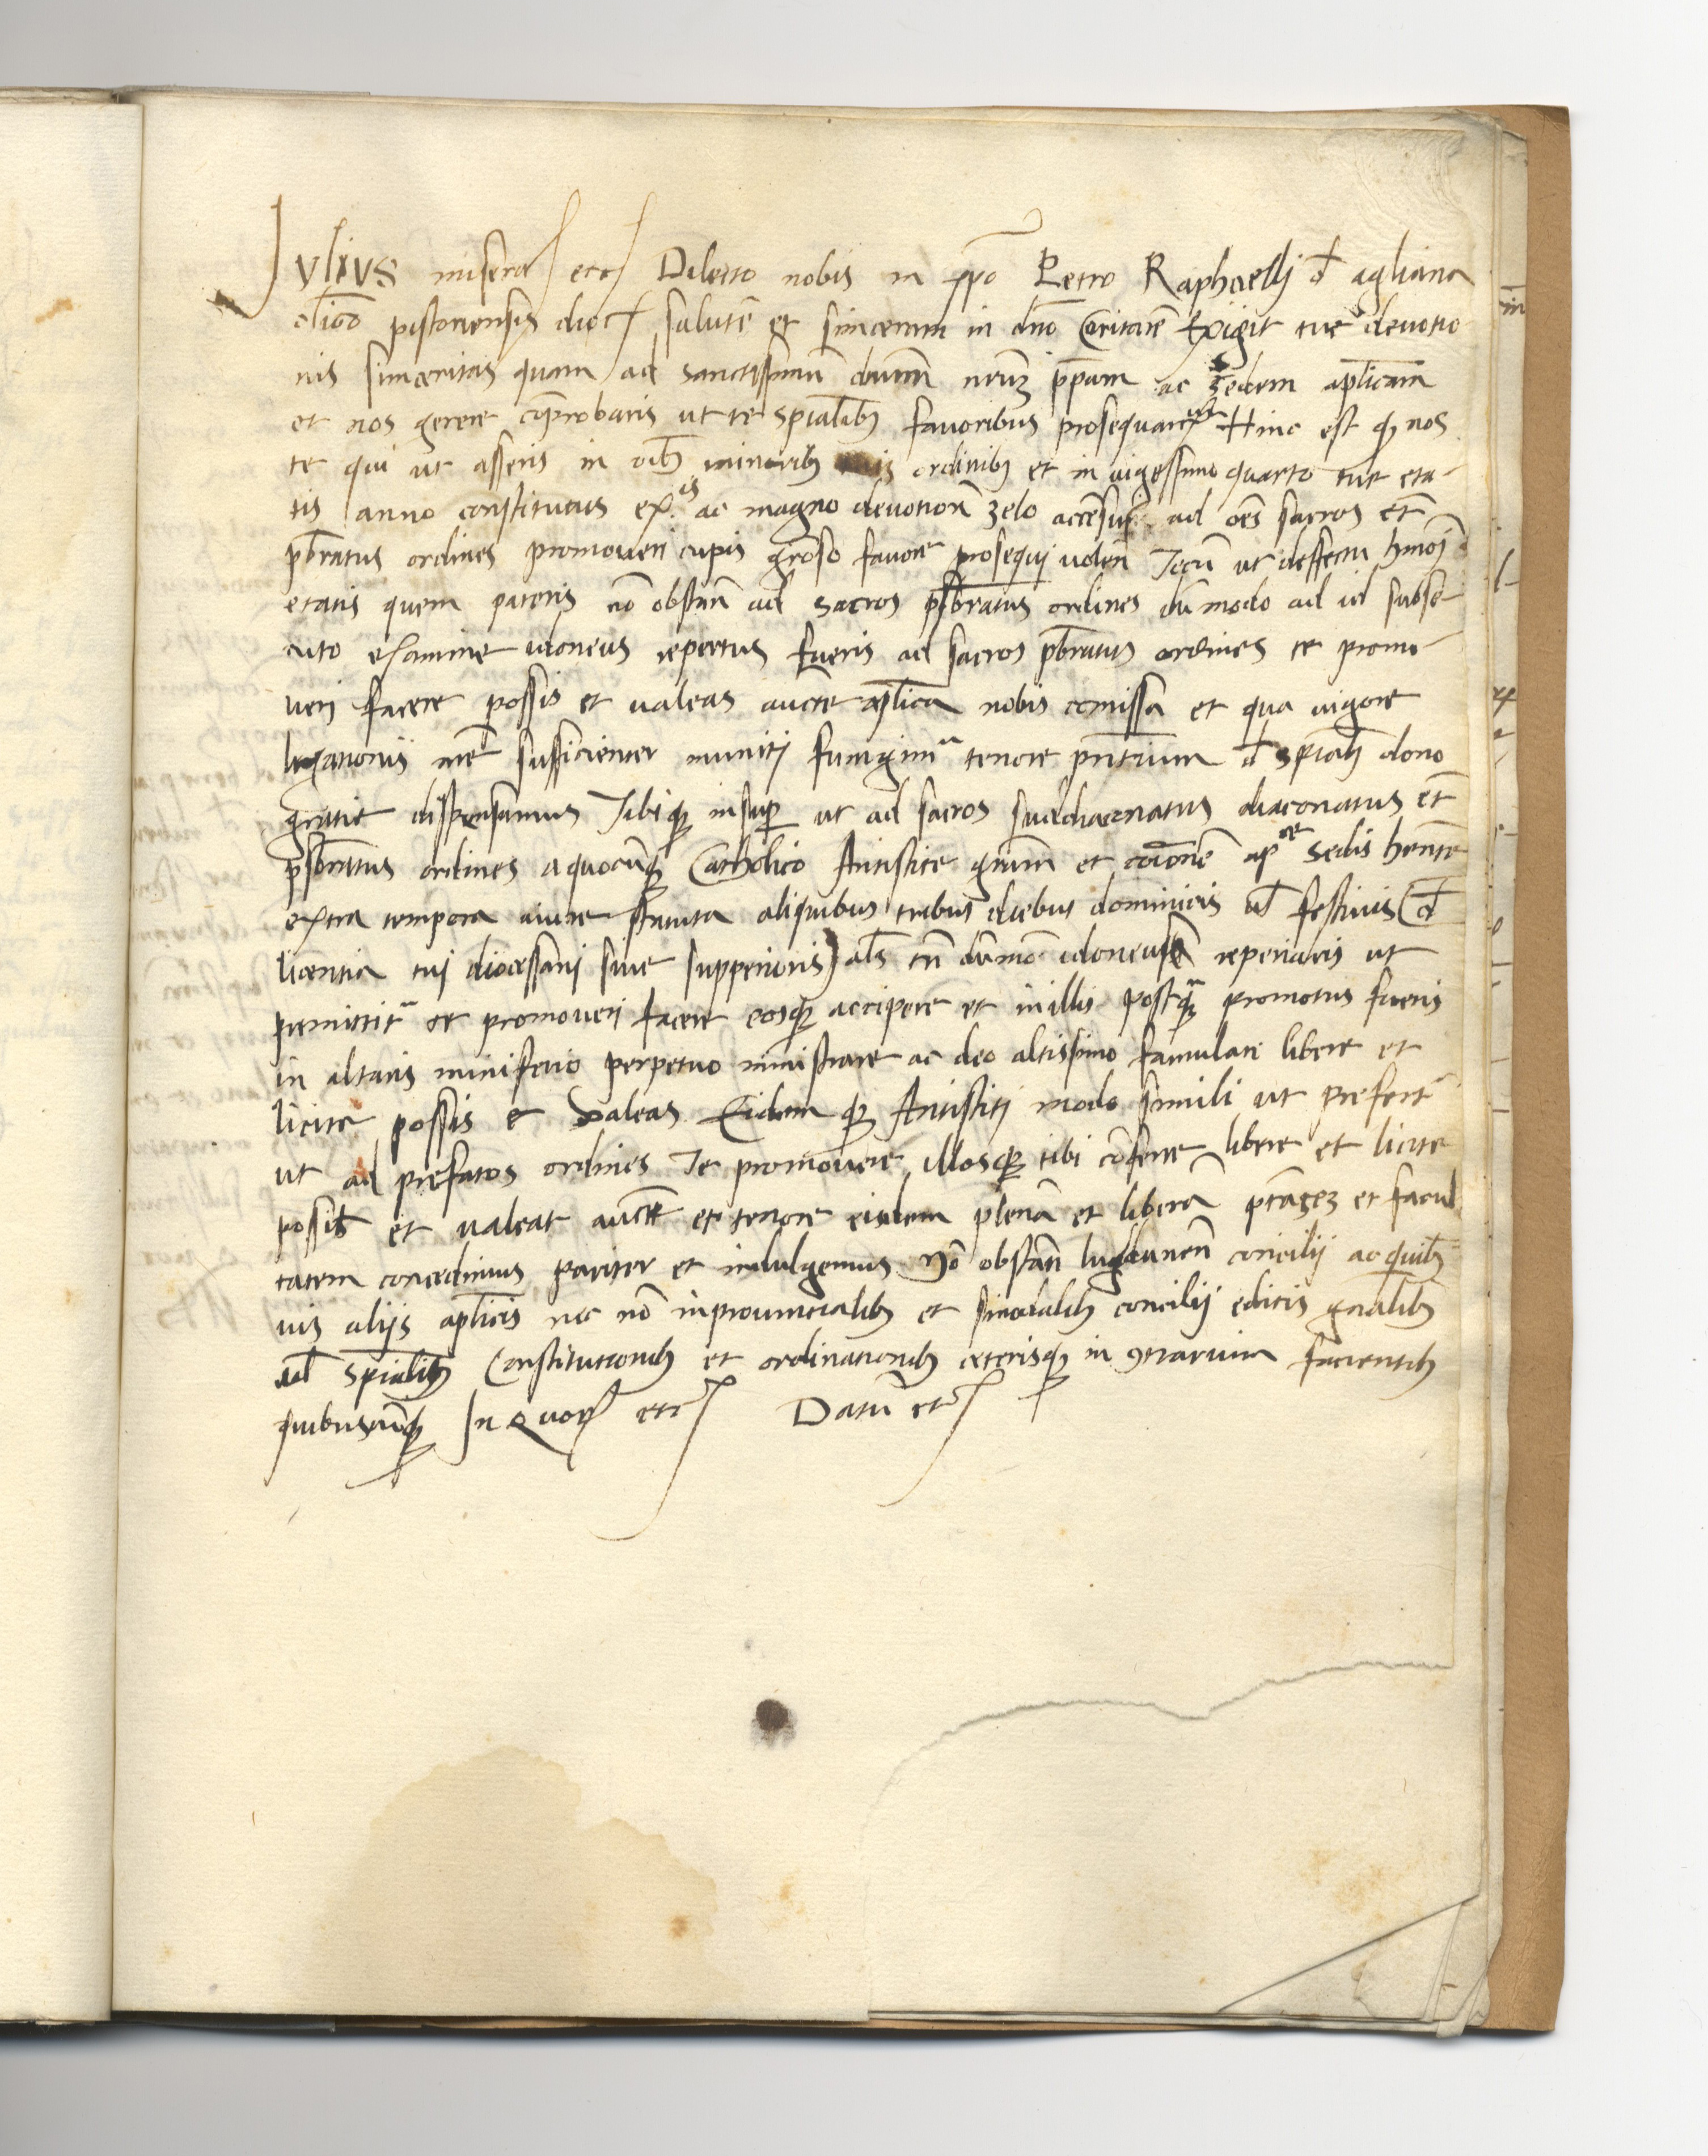 Julius misera etc Dilecto nobis in xpo Petro Raphaelis d agliana
clico pistoriensis dioc salutē et sinceram in dno Caritatē Exigit tue devotio
nis sinceritas quam ad sanctissimū dnum nrum ppam ac Sedem aplicam
et nos gerere cōprobaris ut te spialibus favoribus prosequamur Hinc est q nos
te qui ut asseris in oibus minoribus ordinibus et in vigessimo quarto tue eta-
tis anno constitutus ex.is ac magno devotioni zelo accēsus ad oēs sacros et
pbratus ordines promoveri cupis grōso favore prosequi volen Tecū ut deffectu hmoi
etatis quem pateris nō obstan ad sacros psbratus ordines dūmodo ad id subse-
cuto examine idoneus repertus fueris ad sacros pbratus ordines te promo-
veri facere possis et valeas aucte aplica nobis comissa et qua vigore
legationis nre sufficienter muniti fungimr tenore pntium d spiali dono
gratie dispensamus Tibique insup ut ad sacros subdiaconatus diaconatus et
psbratus ordines a quocūque Catholico Antistite gratiam et coionē ap.ce Sedis hente
extra tempora a iure statuta aliquibus tribus diebus dominicis vl festivis (d
licentia tui diocessani sive supperioris) als tn dūmo idoneus reperiaris ut
premittitr et promoveri facere eosque accipere et in illis postquam promotus fueris
in altaris ministerio perpetuo ministrare ac deo altissimo famulari libere et
licite possis et valeas Eidemque Antistiti modo simili ut Prefert
ut ad prefatos ordines Te promovere illosque tibi cōferre libere et licite
possit et valeat aucte et tenore eisdem plenā et liberā ptatez et facul
tatem concedimus pariter et indulgemus Nō obstan lugdunen concilij ac quibus
vis alijs aplicis nec nō in provincialibus et sinodalibus concilij editis gnalibus
vl spialibus Constitutionibus et ordinationibus ceterisque in 9trarium facientibus
quibuscūque In Quor etc Datū etc